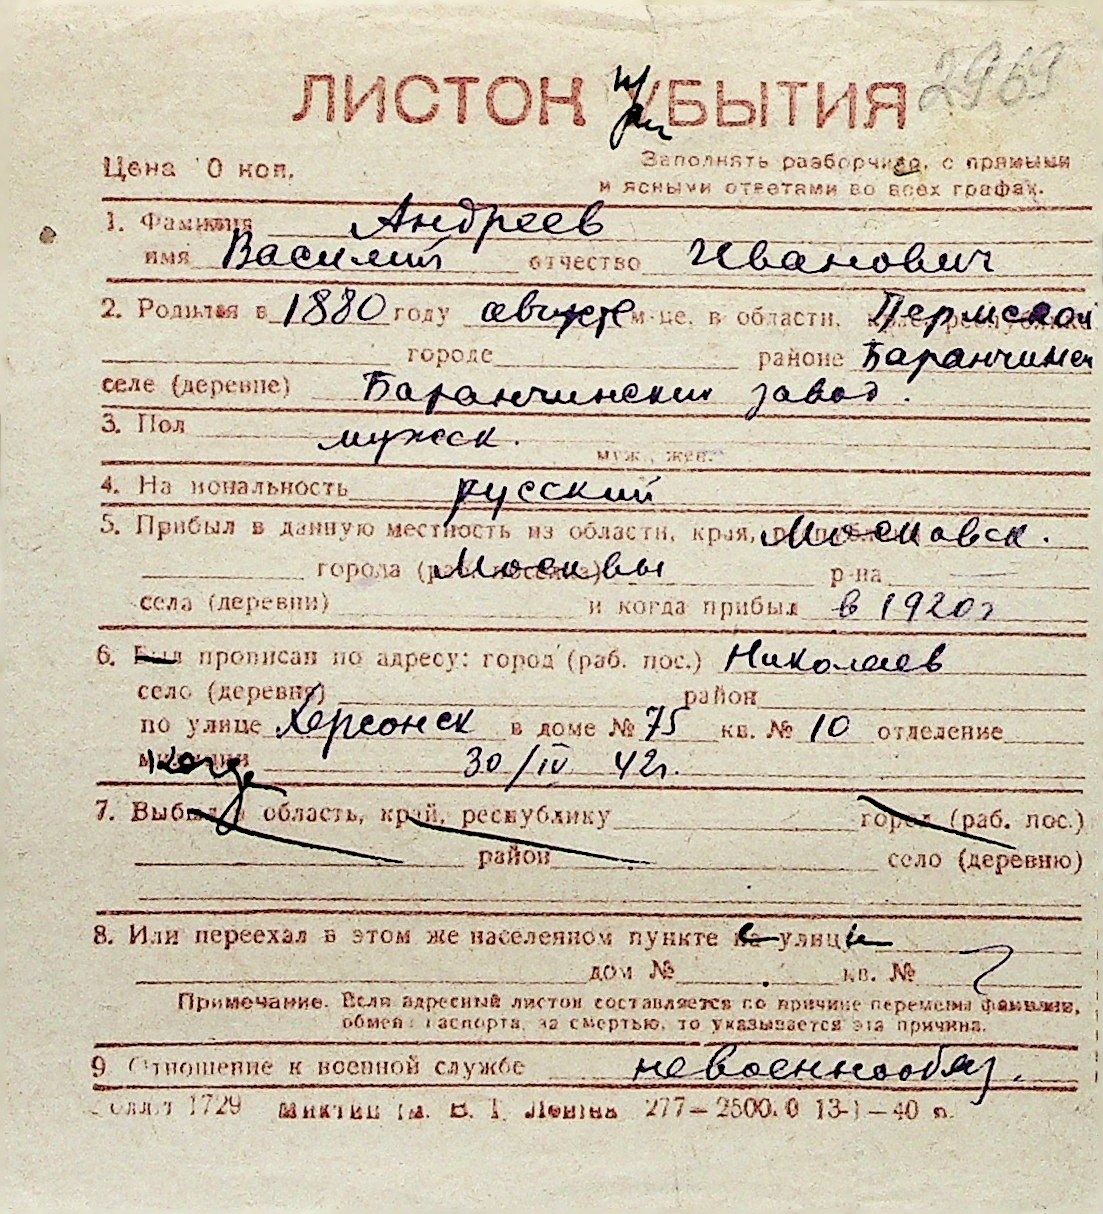 2969
ЛИСТОК при УБЫТИЯ
Цена 10 коп.
Заполнять разборчиво, с прямыми
и ясными ответами во всех графах.
1. Фамилия Андреев
имя Василий отчество Иванович
2. Родился в 1880 году августе м-це, в области, Пермской
городе районе Баранчинск
селе (деревне) Баранчинский завод.
3. Пол мужеск.
муж., жен.
4. Национальность русский
5. Прибыл в данную местность из области, края, Московск.
города (раб. поселка) Москвы р-на
села (деревни) и когда прибыл в 1920г
6. Был прописан по адресу: город (раб. пос.) Николаев
село (деревня) район
по улице Херсонск в доме № 75 кв. № 10 отделение
милиции когда 30/IV 42г.
7. Выбыл в область, край, республику город (раб. пос.)
район село (деревню)
8. Или переехал в этом же населенном пункте с улицы
дом № кв. №
Примечание. Если адресный листок составляется по причине перемены фамилии,
обмена паспорта, за смертью, то указывается эта причина.
9. Отношение к военной службе невоеннообяз.
1729 им. В. І. Леніна 277–2500.0 13-1–40 п.